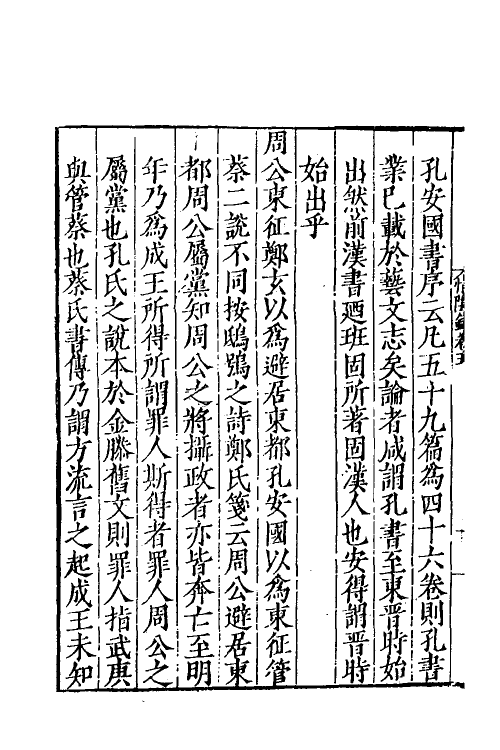 孔安國書序云凡五十九篇為四十六卷則孔書
業已載於藝文志矣論者咸謂孔書至東晋時始
出然前漢書廼班固所著固漢人也安得謂晋時
始出乎
周公東征鄭玄以為避居東都孔安國以為東征管
蔡二說不同按鴟鴞之詩鄭氏箋云周公避居東
都周公屬黨知周公之將攝政者亦皆奔亡至明
年乃為成王所得所謂罪人斯得者罪人周公之
屬黨也孔氏之說本於金滕舊文則罪人指武庚
與管蔡也蔡氏書傳乃謂方流言之起成王未知